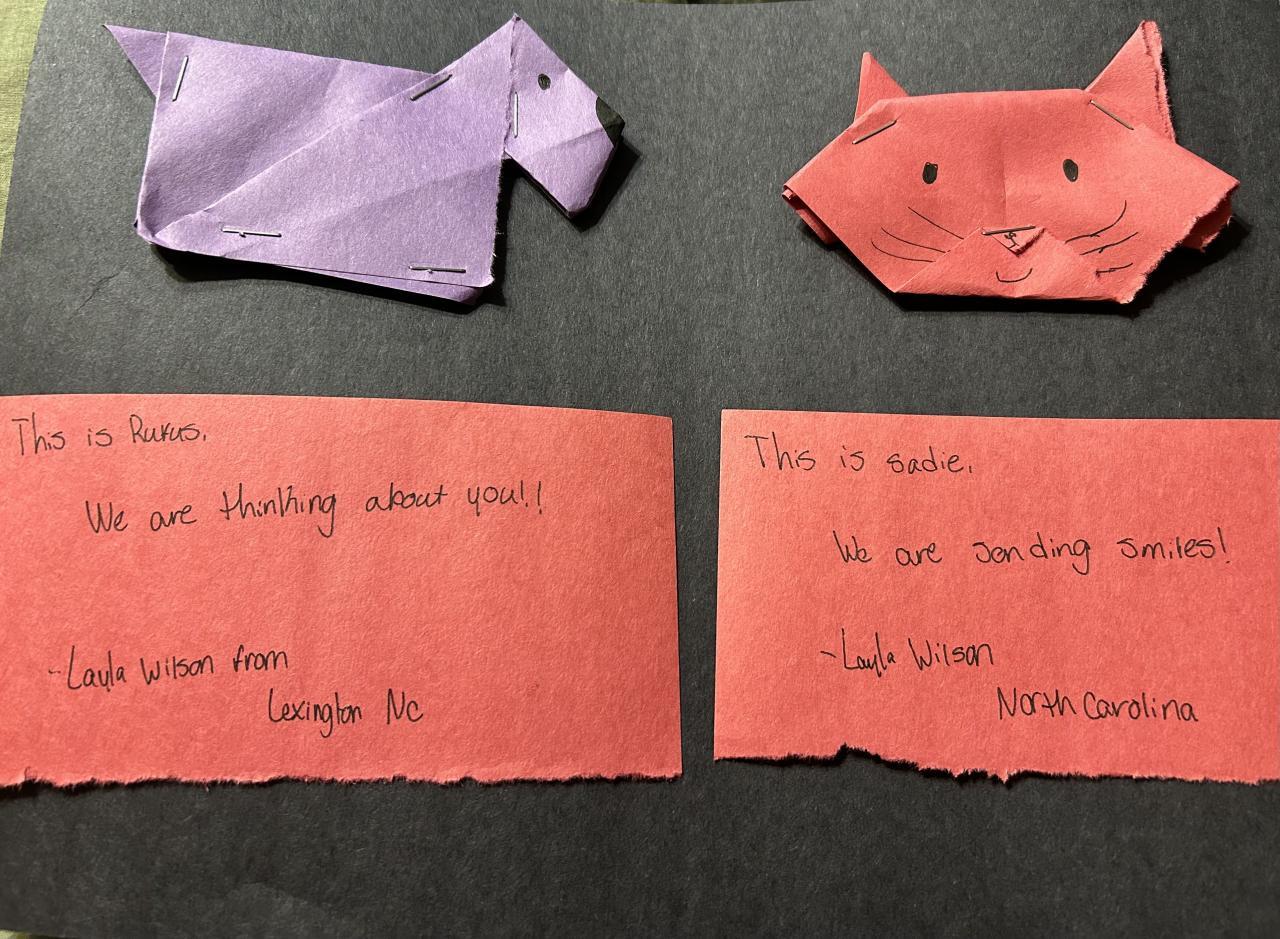 This is Rufus.
We are thinking about you!!
-Layla Wilson from
Lexington Nc
This is sadie.
We are sending smiles!
-Layla Wilson
North Carolina